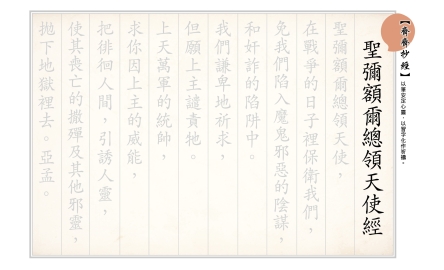 【齋齋抄經】
以筆安定心靈,以習字化作祈禱。
聖彌額爾總領天使經
聖彌額爾總領天使,
在戰爭的日子裡保衛我們,
免我們陷入魔鬼邪惡的陰謀,
和奸詐的陷阱中。
我們謙卑地祈求,
但願上主譴責牠。
上天萬軍的統帥,
求你因上主的威能,
把徘徊人間,引誘人靈,
使其喪亡的撒殫及其他邪靈,
拋下地獄裡去。亞孟。